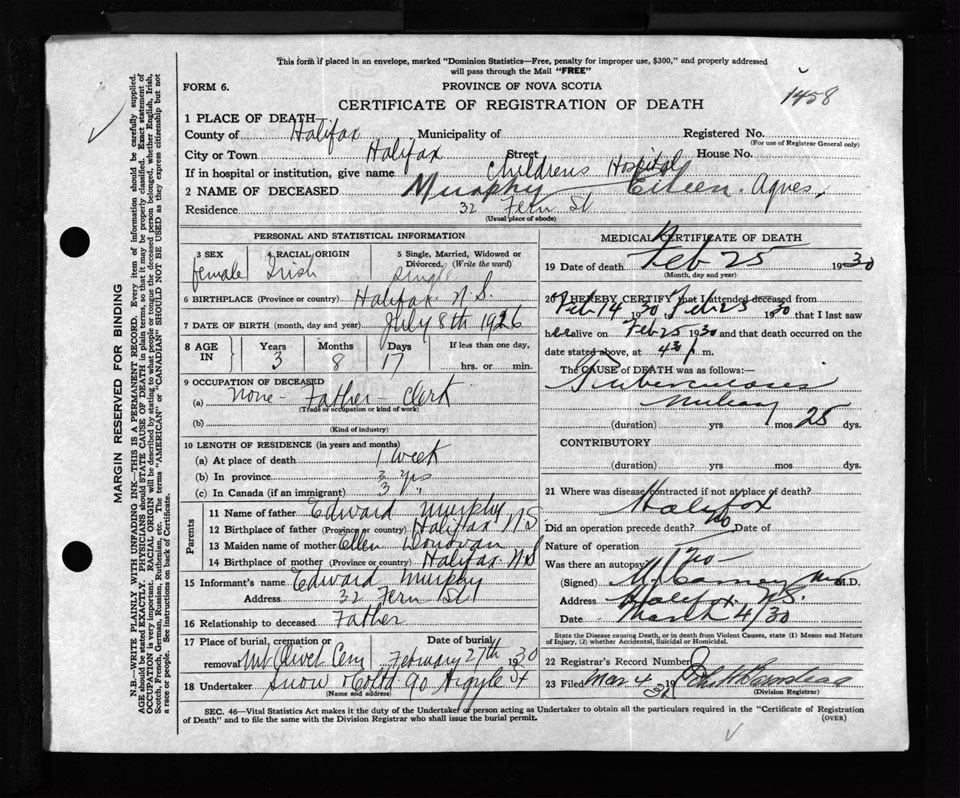 This form if placed in an envelope, marked "Dominion Statistics—Free, penalty for improper use, $300," and properly addressed
will pass through the Mail "FREE"
FORM 6.
PROVINCE OF NOVA SCOTIA
1458
CERTIFICATE OF REGISTRATION OF DEATH
1 PLACE OF DEATH
County of Halifax Municipality of Registered No.
(For use of Registrar General only)
City or Town Halifax Street House No.
If in hospital or institution, give name Childrens Hospital
2 NAME OF DECEASED Murphy Eileen Agnes
Residence 32 Fern St
(Usual place of abode)
PERSONAL AND STATISTICAL INFORMATION
3 SEX 4 RACIAL ORIGIN 5 Single, Married, Widowed or Divorced. (Write the word)
female Irish Single
6 BIRTHPLACE (Province or country) Halifax N.S.
7 DATE OF BIRTH (month, day and year) July 8th 1926
8 AGE IN Years Months Days If less than one day,
3 8 17 hrs. or min.
9 OCCUPATION OF DECEASED
(a) None - Father - Clerk
(Trade or occupation or kind of work)
(b)
(Kind of industry)
10 LENGTH OF RESIDENCE (in years and months)
(a) At place of death 1 Week
(b) In province 3 yrs
(c) In Canada (if an immigrant) 3 "
Parents
11 Name of father Edward Murphy
12 Birthplace of father (Province or country) Halifax N S
13 Maiden name of mother Ellen Donovan
14 Birthplace of mother (Province or country) Halifax N S
15 Informant's name Edward Murphy
Address 32 Fern St
16 Relationship to deceased Father
17 Place of burial, cremation or removal Mt Olivet Cem
Date of burial February 27th 1930
18 Undertaker Snow & Co Ltd 90 Argyle St
(Name and address)
MEDICAL CERTIFICATE OF DEATH
19 Date of death Feb 25 1930
(Month, day and year)
20 I HEREBY CERTIFY that I attended deceased from
Feb 14 1930 Feb 25 1930 that I last saw
her alive on Feb 25 1930 and that death occurred on the
date stated above, at 4 30 m.
The CAUSE of DEATH was as follows:—
Tuberculosis
Miliary
(duration) yrs mos 25 dys.
CONTRIBUTORY
(duration) yrs. mos. dys.
21 Where was disease contracted if not at place of death?
Halifax
Did an operation precede death? No Date of
Nature of operation
Was there an autopsy? No
(Signed) M.D.
Address Halifax N.S.
Date March 4/30
State the Disease causing Death, or in death from Violent Causes, state (1) Means and Nature
of Injury, (2) whether Accidental, Suicidal or Homicidal.
22 Registrar's Record Number
23 Filed Mar 4 19 30
(Division Registrar)
SEC. 46—Vital Statistics Act makes it the duty of the Undertaker or person acting as Undertaker to obtain all the particulars required in the "Certificate of Registration
of Death" and to file the same with the Division Registrar who shall issue the burial permit.
(OVER)
MARGIN RESERVED FOR BINDING
N.B.—WRITE PLAINLY WITH UNFADING INK—THIS IS A PERMANENT RECORD. Every item of information should be carefully supplied.
AGE should be stated EXACTLY. PHYSICIANS should STATE CAUSE OF DEATH in plain terms, so that it may be properly classified. Exact statement of
OCCUPATION is very important. RACIAL ORIGIN will be described by stating to what people or tongue the deceased person belonged, whether English, Irish,
Scotch, French, German, Russian, Ruthenian, etc. The terms "AMERICAN" or "CANADIAN" SHOULD NOT BE USED as they express citizenship but not
a race or people. See instructions on back of Certificate.